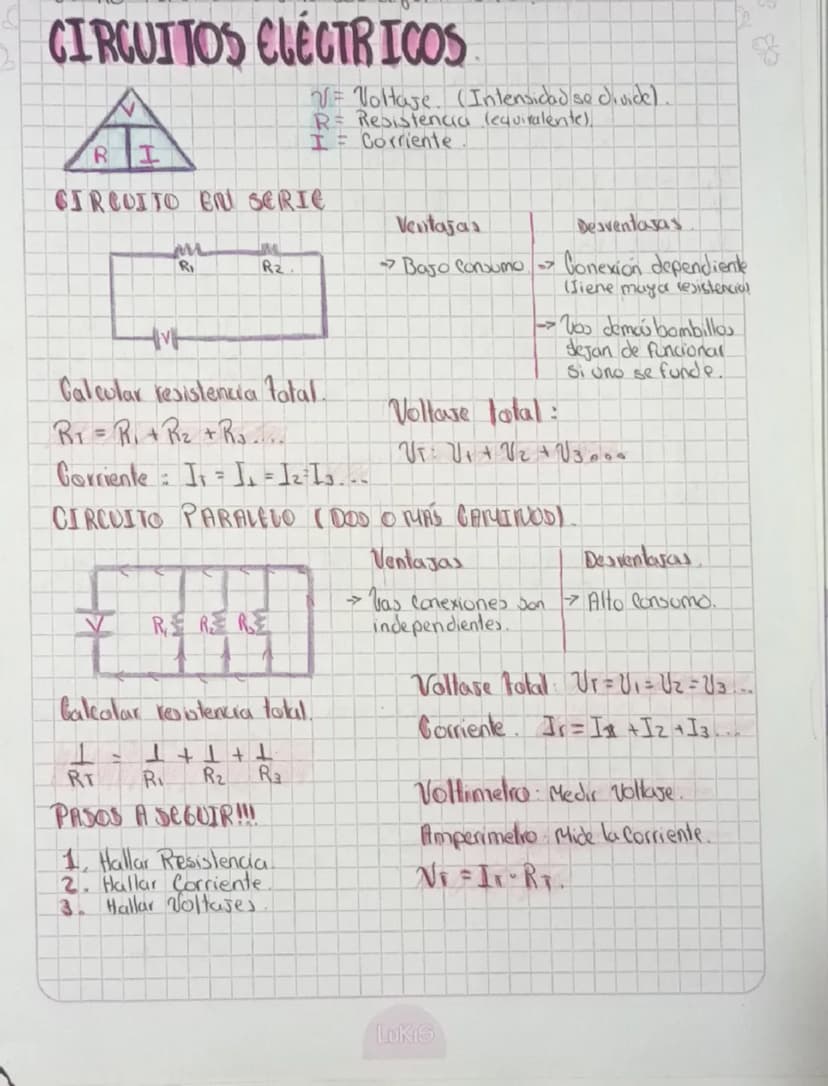 CIRCUITOS ELÉCTRICOS.
V
R I
V = Voltaje. (Intensidad se divide).
R = Resistencia (equivalente).
I = Corriente.
CIRCUITO EN SERIE
R1 R2.
V
Ventajas
→ Bajo consumo.
Desventajas.
→ Conexión dependiente
(Tiene mayor resistencia)
→ Los demás bombillos
dejan de funcionar
si uno se funde.
Calcular resistencia total.
RT = R1 + R2 + R3....
Corriente : IT = I1 = I2 = I3...
Voltaje total :
VT: V1 + V2 + V3...
CIRCUITO PARALELO (DOS O MÁS CAMINOS).
V R1 R2 R3
Ventajas
→ Las conexiones son
independientes.
Desventajas.
→ Alto consumo.
Calcular resistencia total.
1/RT = 1/R1 + 1/R2 + 1/R3
Voltaje total: VT = V1 = V2 = V3...
Corriente. IT = I1 + I2 + I3...
PASOS A SEGUIR!!!
1. Hallar Resistencia.
2. Hallar Corriente.
3. Hallar Voltajes.
Voltimetro: Medir Voltaje.
Amperimetro: Mide la corriente.
VT = IT · RT.
LUKIS